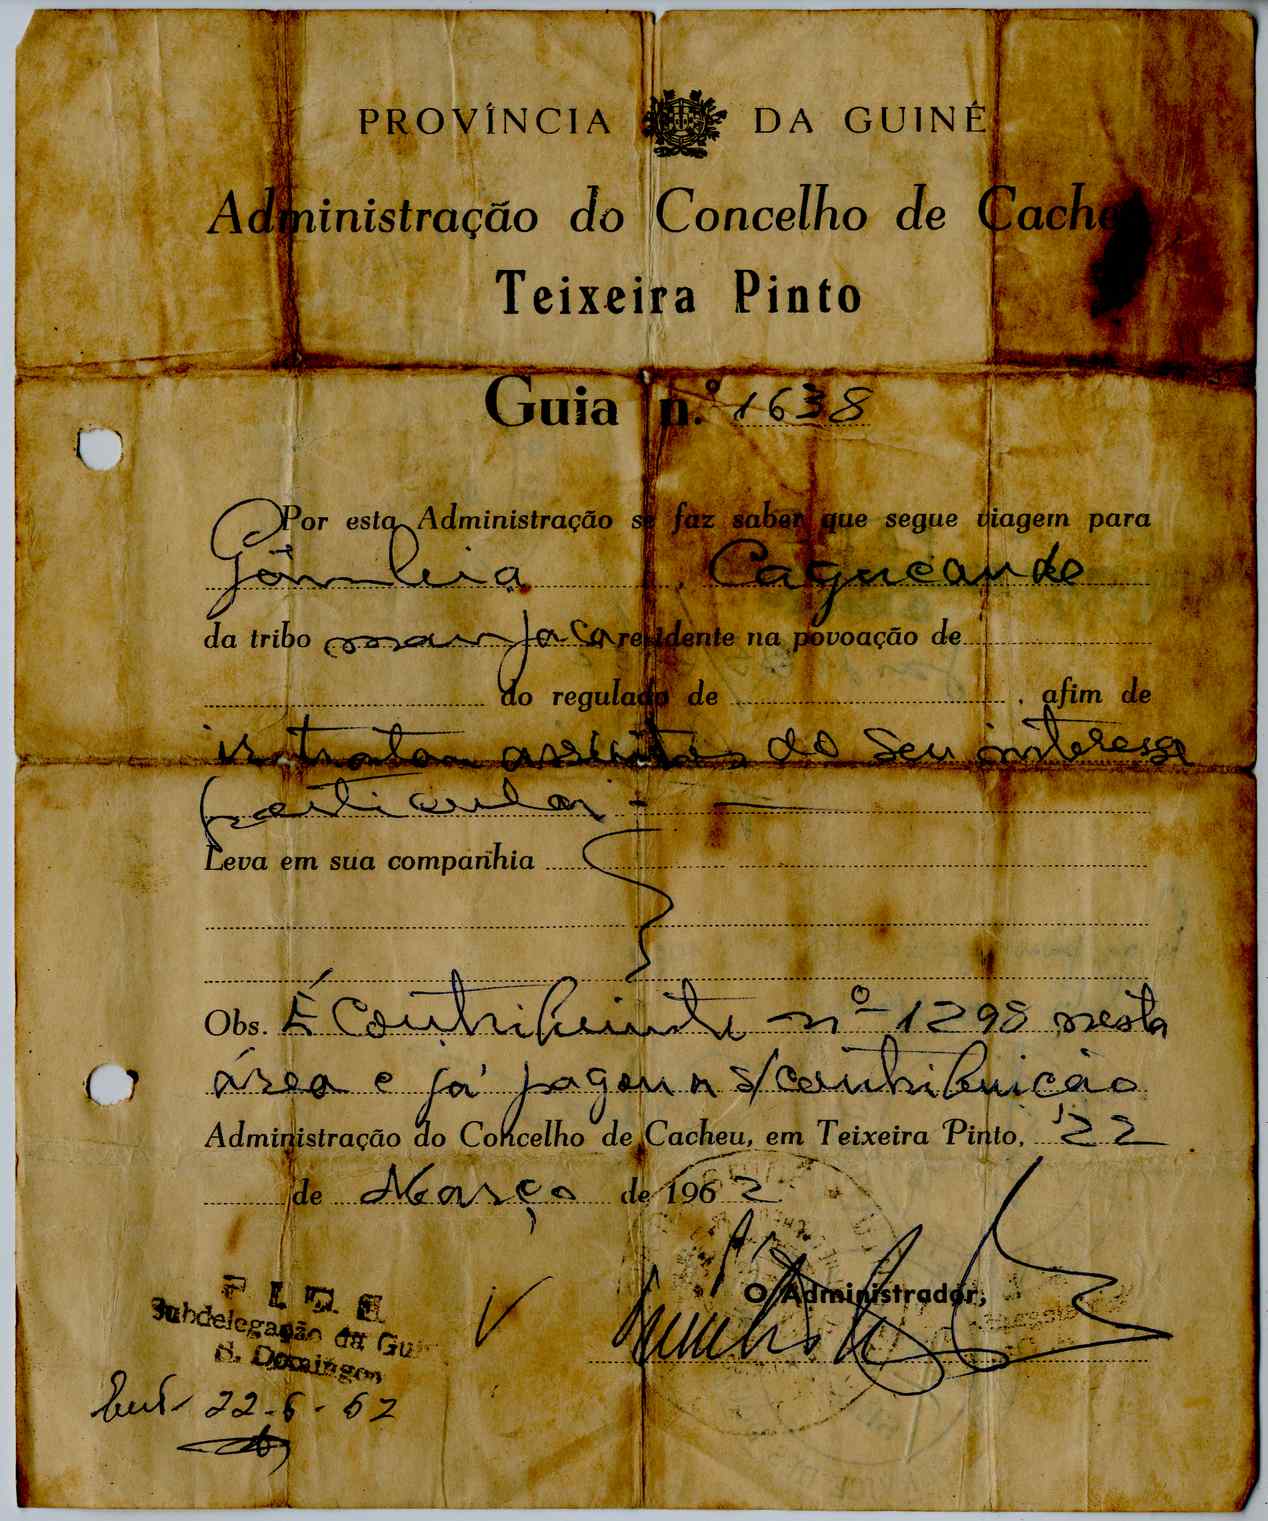 PROVÍNCIA DA GUINÉ
Administração do Concelho de Cacheu
Teixeira Pinto
Guia n.º 1638
Por esta Administração se faz saber que segue viagem para
Gâmbia, Cagucande
da tribo manjaca residente na povoação de
do regulado de , afim de
ir tratar assuntos do seu interesse
particular.-
Leva em sua companhia
Obs. É contribuinte nº 1298 nesta
área e já pagou a s/contribuição
Administração do Concelho de Cacheu, em Teixeira Pinto, 22
de Março de 1962
O Administrador,
P. I. D. E.
Subdelegação da Gui
S. Domingos
22-6-62